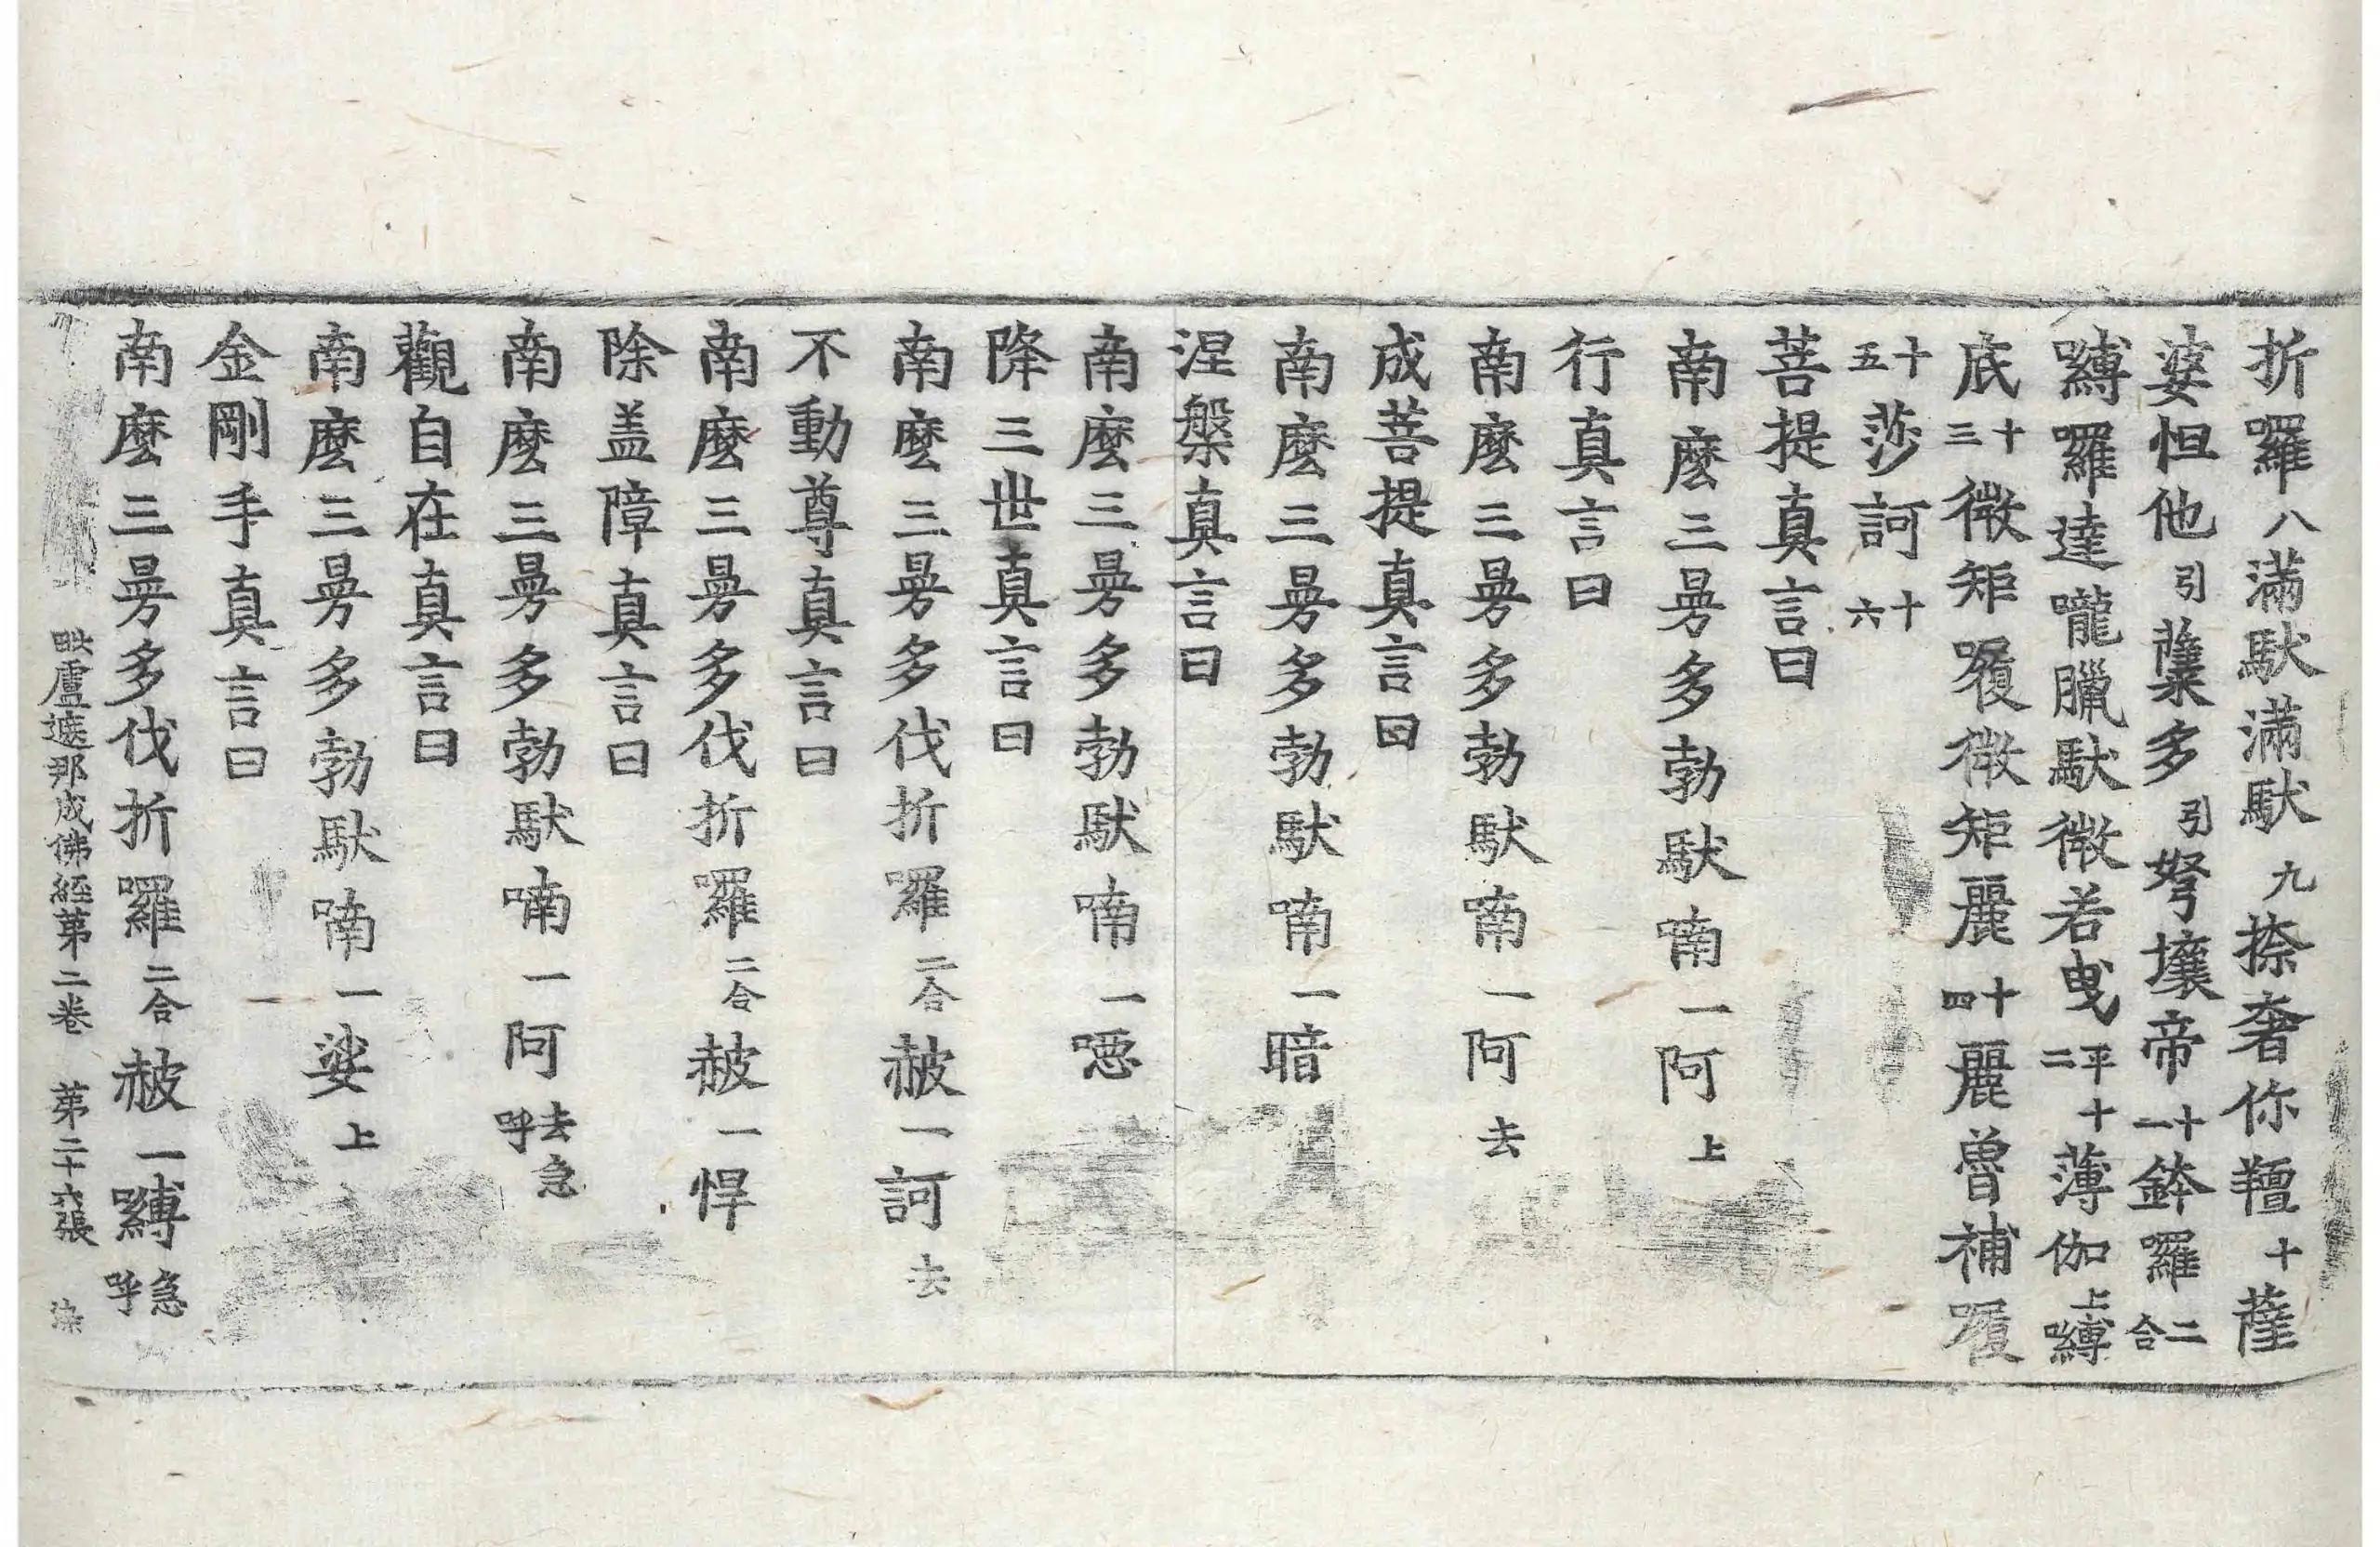 折囉八滿馱滿馱九捺奢你羶十薩
婆怛他引蘖多引弩壤帝十一鉢囉二合
嚩囉達嚨臘馱微若曳平十二薄伽上嚩
底十三微矩囉微矩麗十四麗魯補
十五莎訶十六
菩提真言曰
南麼三曼多勃馱喃一阿上
行真言曰
南麼三曼多勃馱喃一阿去
成菩提真言曰
南麼三曼多勃馱喃一暗
涅槃真言曰
南麼三曼多勃馱喃一噁
降三世真言曰
南麼三曼多伐折囉二合赧一訶去
不動尊真言曰
南麼三曼多伐折囉二合赧一悍
除盖障真言曰
南麼三曼多勃馱喃一阿去急呼
觀自在真言曰
南麼三曼多勃馱喃一娑上
金剛手真言曰
南麼三曼多伐折囉二合赧一嚩急呼
毗盧遮那成佛經第二卷 第二十六張 染